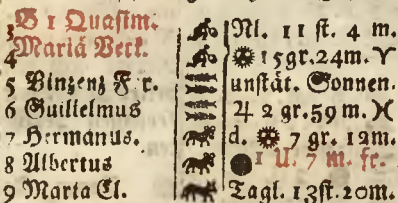 3 B 1 Quasim. Nl. 11 st. 4 m.
4 Mariä Verk. 15gr.24m. ♈
5 Vinzenz F r. unstät. Sonnen.
6 Guillelmus ♃ 2 gr.59 m. ♓
7 Hermanus. d. 7 gr. 12m.
8 Albertus 1 U. 7 m. fr.
9 Maria Cl. Tagl. 13st.20m.